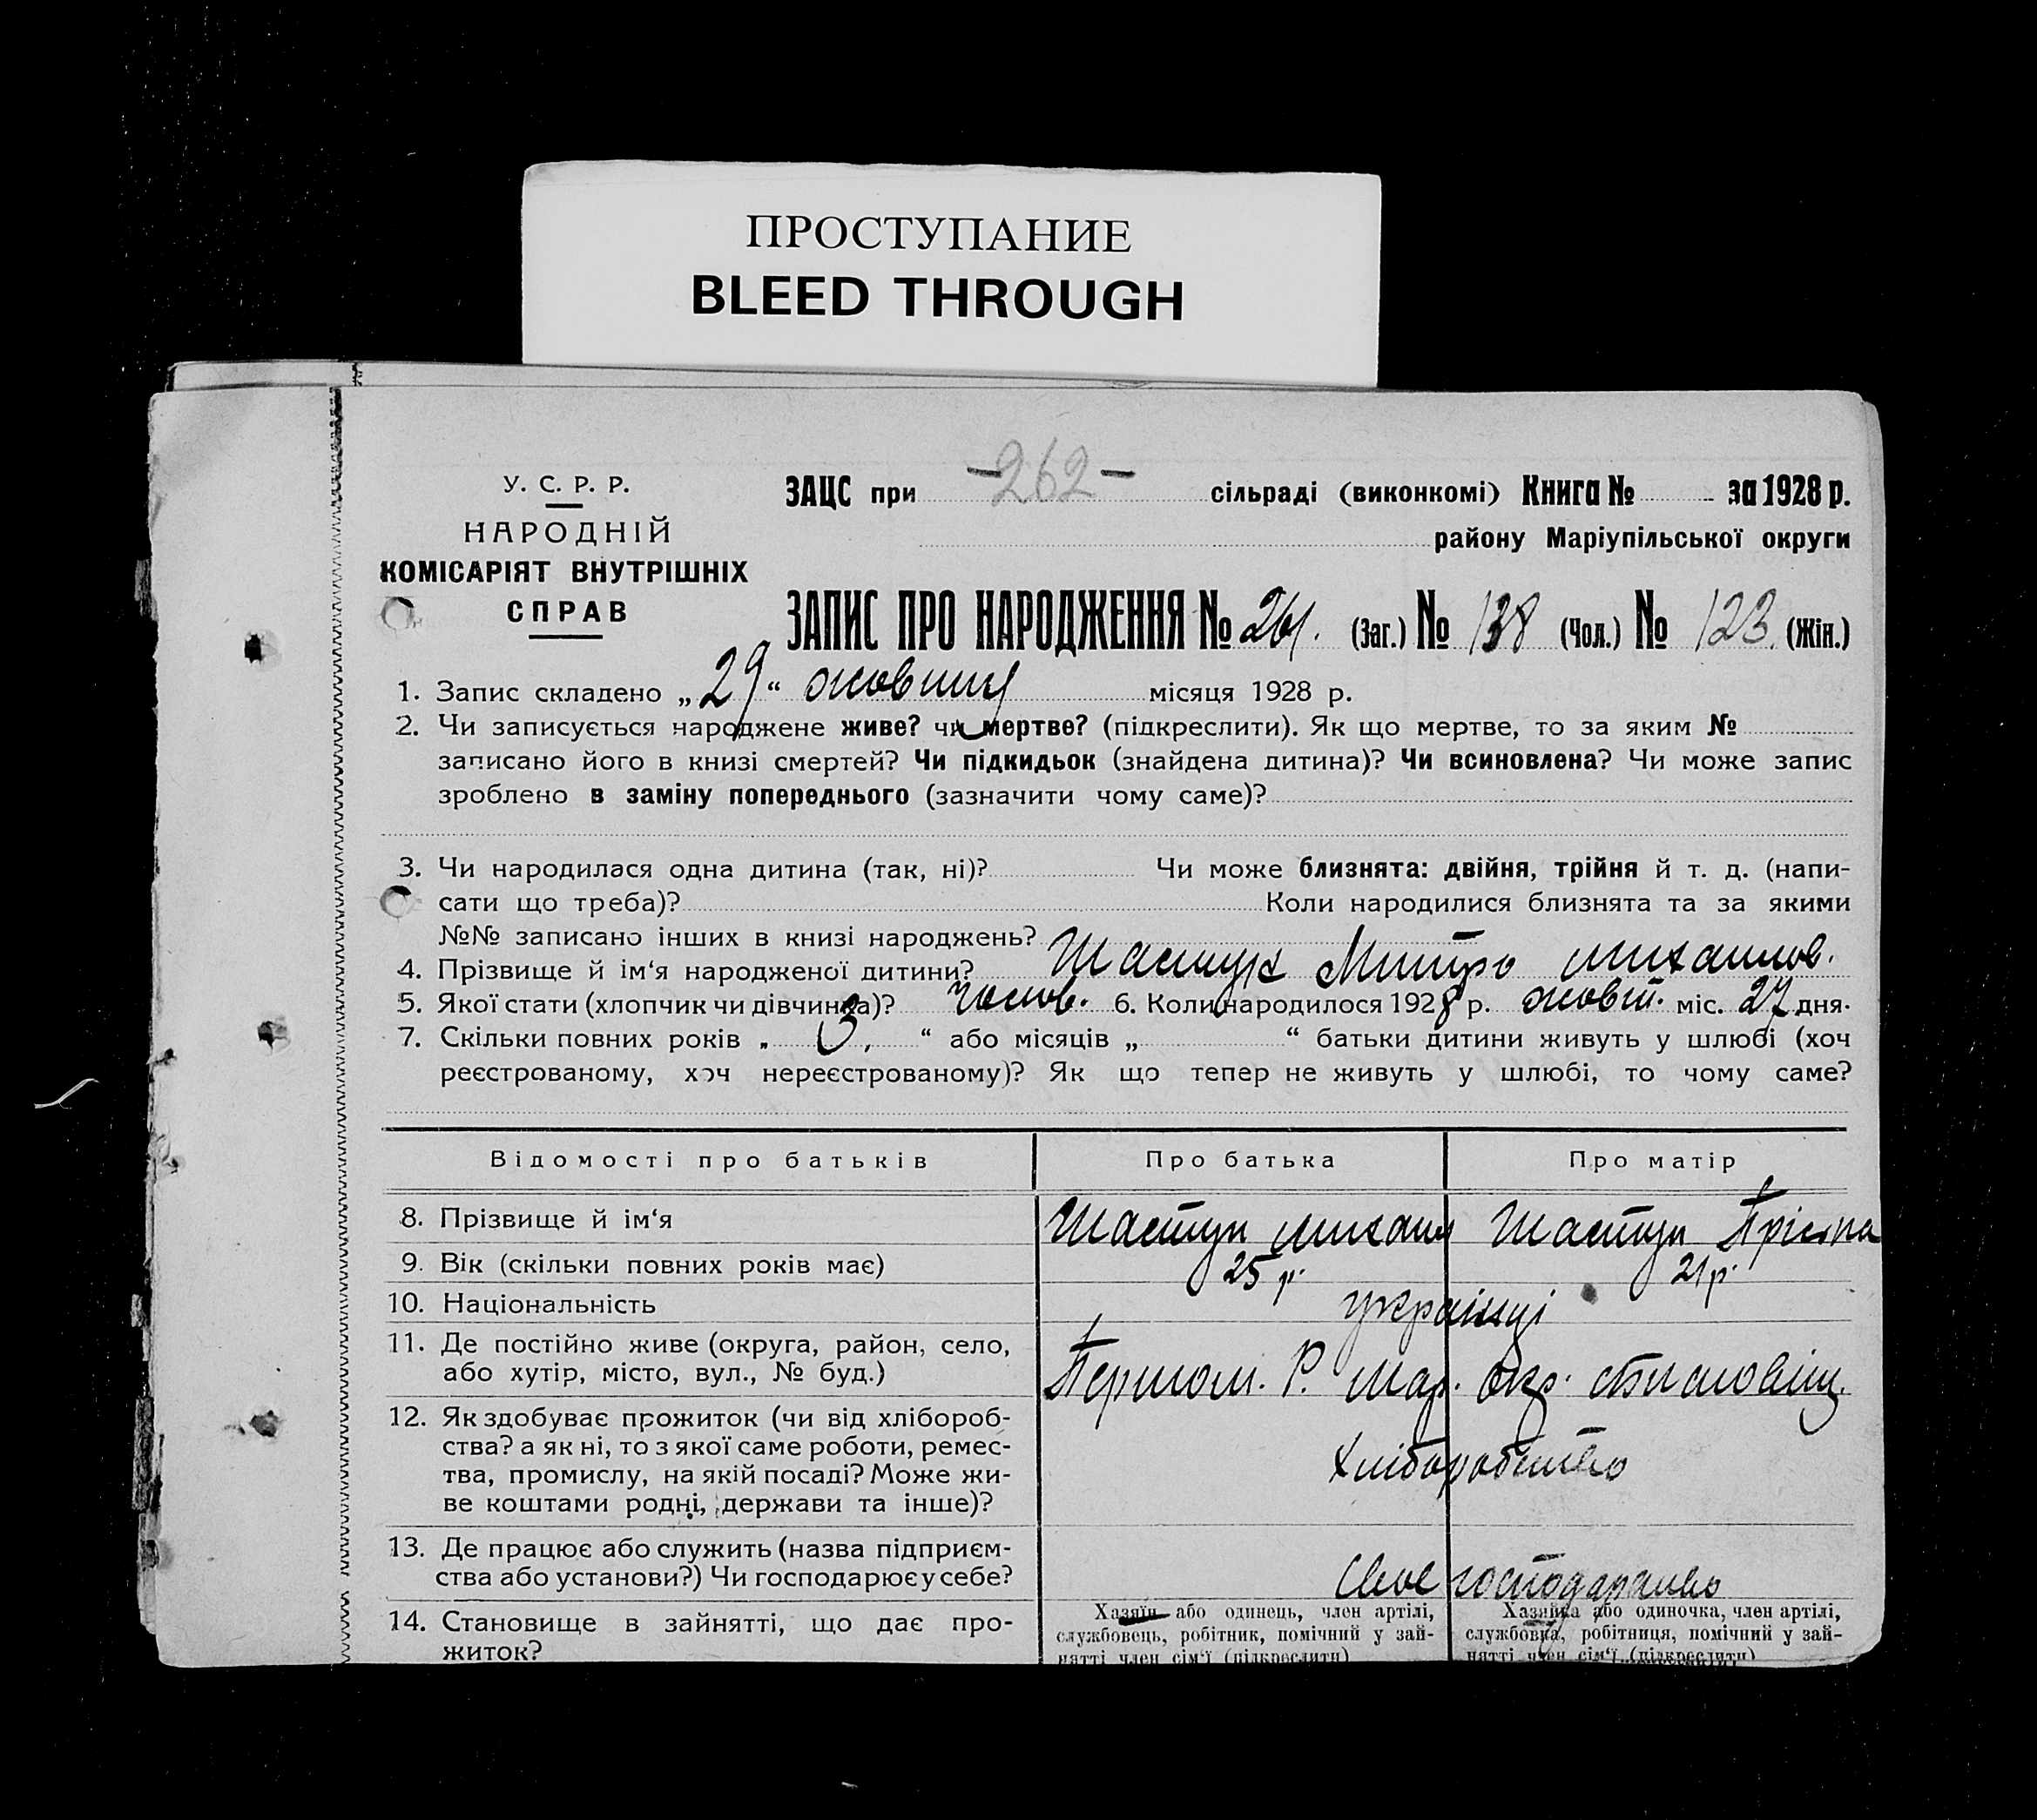 ПРОСТУПАНИЕ
BLEED THROUGH
У. С. Р. Р.
НАРОДНІЙ
КОМІСАРІЯТ ВНУТРІШНІХ
СПРАВ
ЗАЦС при -262- сільраді (виконкомі) Книга № за 1928 р.
району Маріупільської округи
ЗАПИС ПРО НАРОДЖЕННЯ № 261. (Заг.) № 138 (Чол.) № 123. (Жін.)
1. Запис складено „29“ жовтня місяця 1928 р.
2. Чи записується народжене живе? чи мертве? (підкреслити). Як що мертве, то за яким №
записано його в книзі смертей? Чи підкидьок (знайдена дитина)? Чи всиновлена? Чи може запис
зроблено в заміну попереднього (зазначити чому саме)?
3. Чи народилася одна дитина (так, ні)? Чи може близнята: двійня, трійня й т. д. (напи-
сати що треба)? Коли народилися близнята та за якими
№№ записано інших в книзі народжень?
4. Прізвище й ім‘я народженої дитини? Митро
5. Якої стати (хлопчик чи дівчинка)? чолов. 6. Коли народилося 1928 р. жовт. міс. 27 дня.
7. Скільки повних років „ 3, “ або місяців „ “ батьки дитини живуть у шлюбі (хоч
реєстрованому, хоч нереєстрованому)? Як що тепер не живуть у шлюбі, то чому саме?
Відомості про батьків Про батька Про матір
8. Прізвище й ім‘я
9. Вік (скільки повних років має) 25 р. 21 р.
10. Національність українці
11. Де постійно живе (округа, район, село,
або хутір, місто, вул., № буд.) Першом. Р. Мар. окр.
12. Як здобуває прожиток (чи від хлібороб-
ства? а як ні, то з якої саме роботи, ремес-
тва, промислу, на якій посаді? Може жи-
ве коштами родні, держави та інше)? Хліборобство
13. Де працює або служить (назва підприєм-
ства або установи?) Чи господарює у себе? Своє господарство
14. Становище в зайнятті, що дає про-
житок?
Хазяїн або одинець, член артілі,
службовець, робітник, помічний у зай-
нятті член сім‘ї (підкреслити)
Хазяйка або одиночка, член артілі,
службовка, робітниця, помічний у зай-
нятті член сім‘ї (підкреслити)